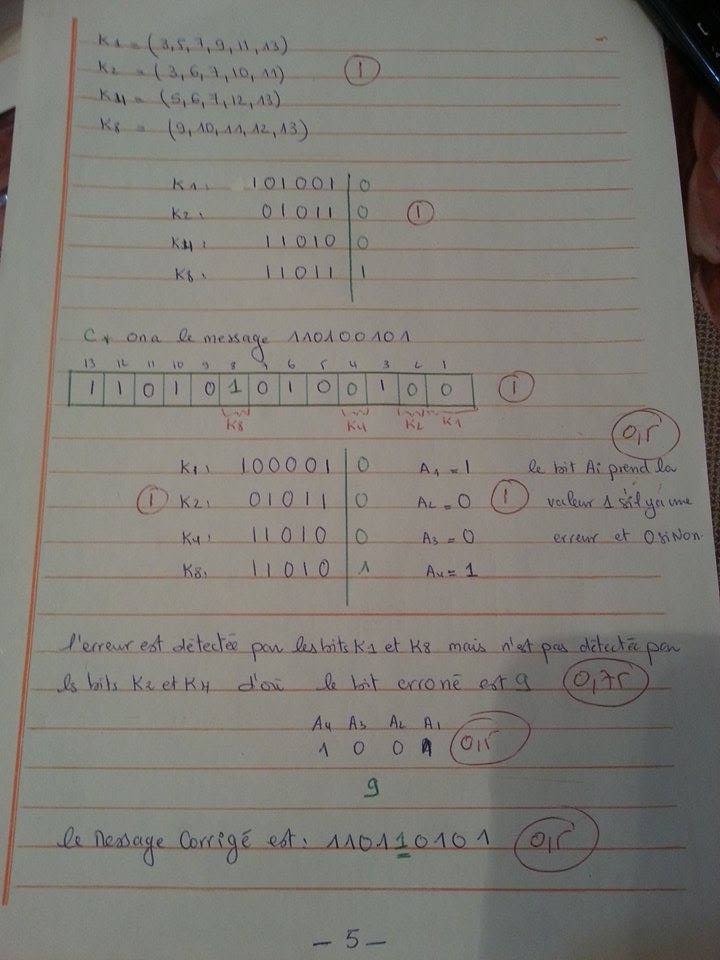 K1 = (3,5,7,9,11,13)
K2 = (3,6,7,10,11) 1
K4 = (5,6,7,12,13)
K8 = (9,10,11,12,13)
K1: 101001 | 0
K2: 01011 | 0 1
K4: 11010 | 0
K8: 11011 | 1
C, on a le message 110100101
13 12 11 10 9 8 7 6 5 4 3 2 1
1 1 0 1 0 1 0 1 0 0 1 0 0 1
K8 K4 K2 K1
0,5
K1: 100001 | 0 A1 = 1 le bit Ai prend la
1 K2: 01011 | 0 A2 = 0 1 valeur 1 s'il y a une
K4: 11010 | 0 A3 = 0 erreur et 0 sinon.
K8: 11010 | 1 A4 = 1
l'erreur est détectée par les bits K1 et K8 mais n'est pas détectée par
ls bits K2 et K4 d'où le bit erroné est 9 0,75
A4 A3 A2 A1
1 0 0 1 0,5
9
le message corrigé est: 110110101 0,5
- 5 -